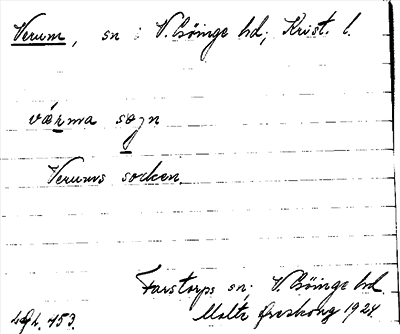 Verum, sn : V. Göinge hd; Krist. l.
värma sogn
Verums socken.
Farstorps sn; V. Göinge hd
Malte Areskoug 1924.